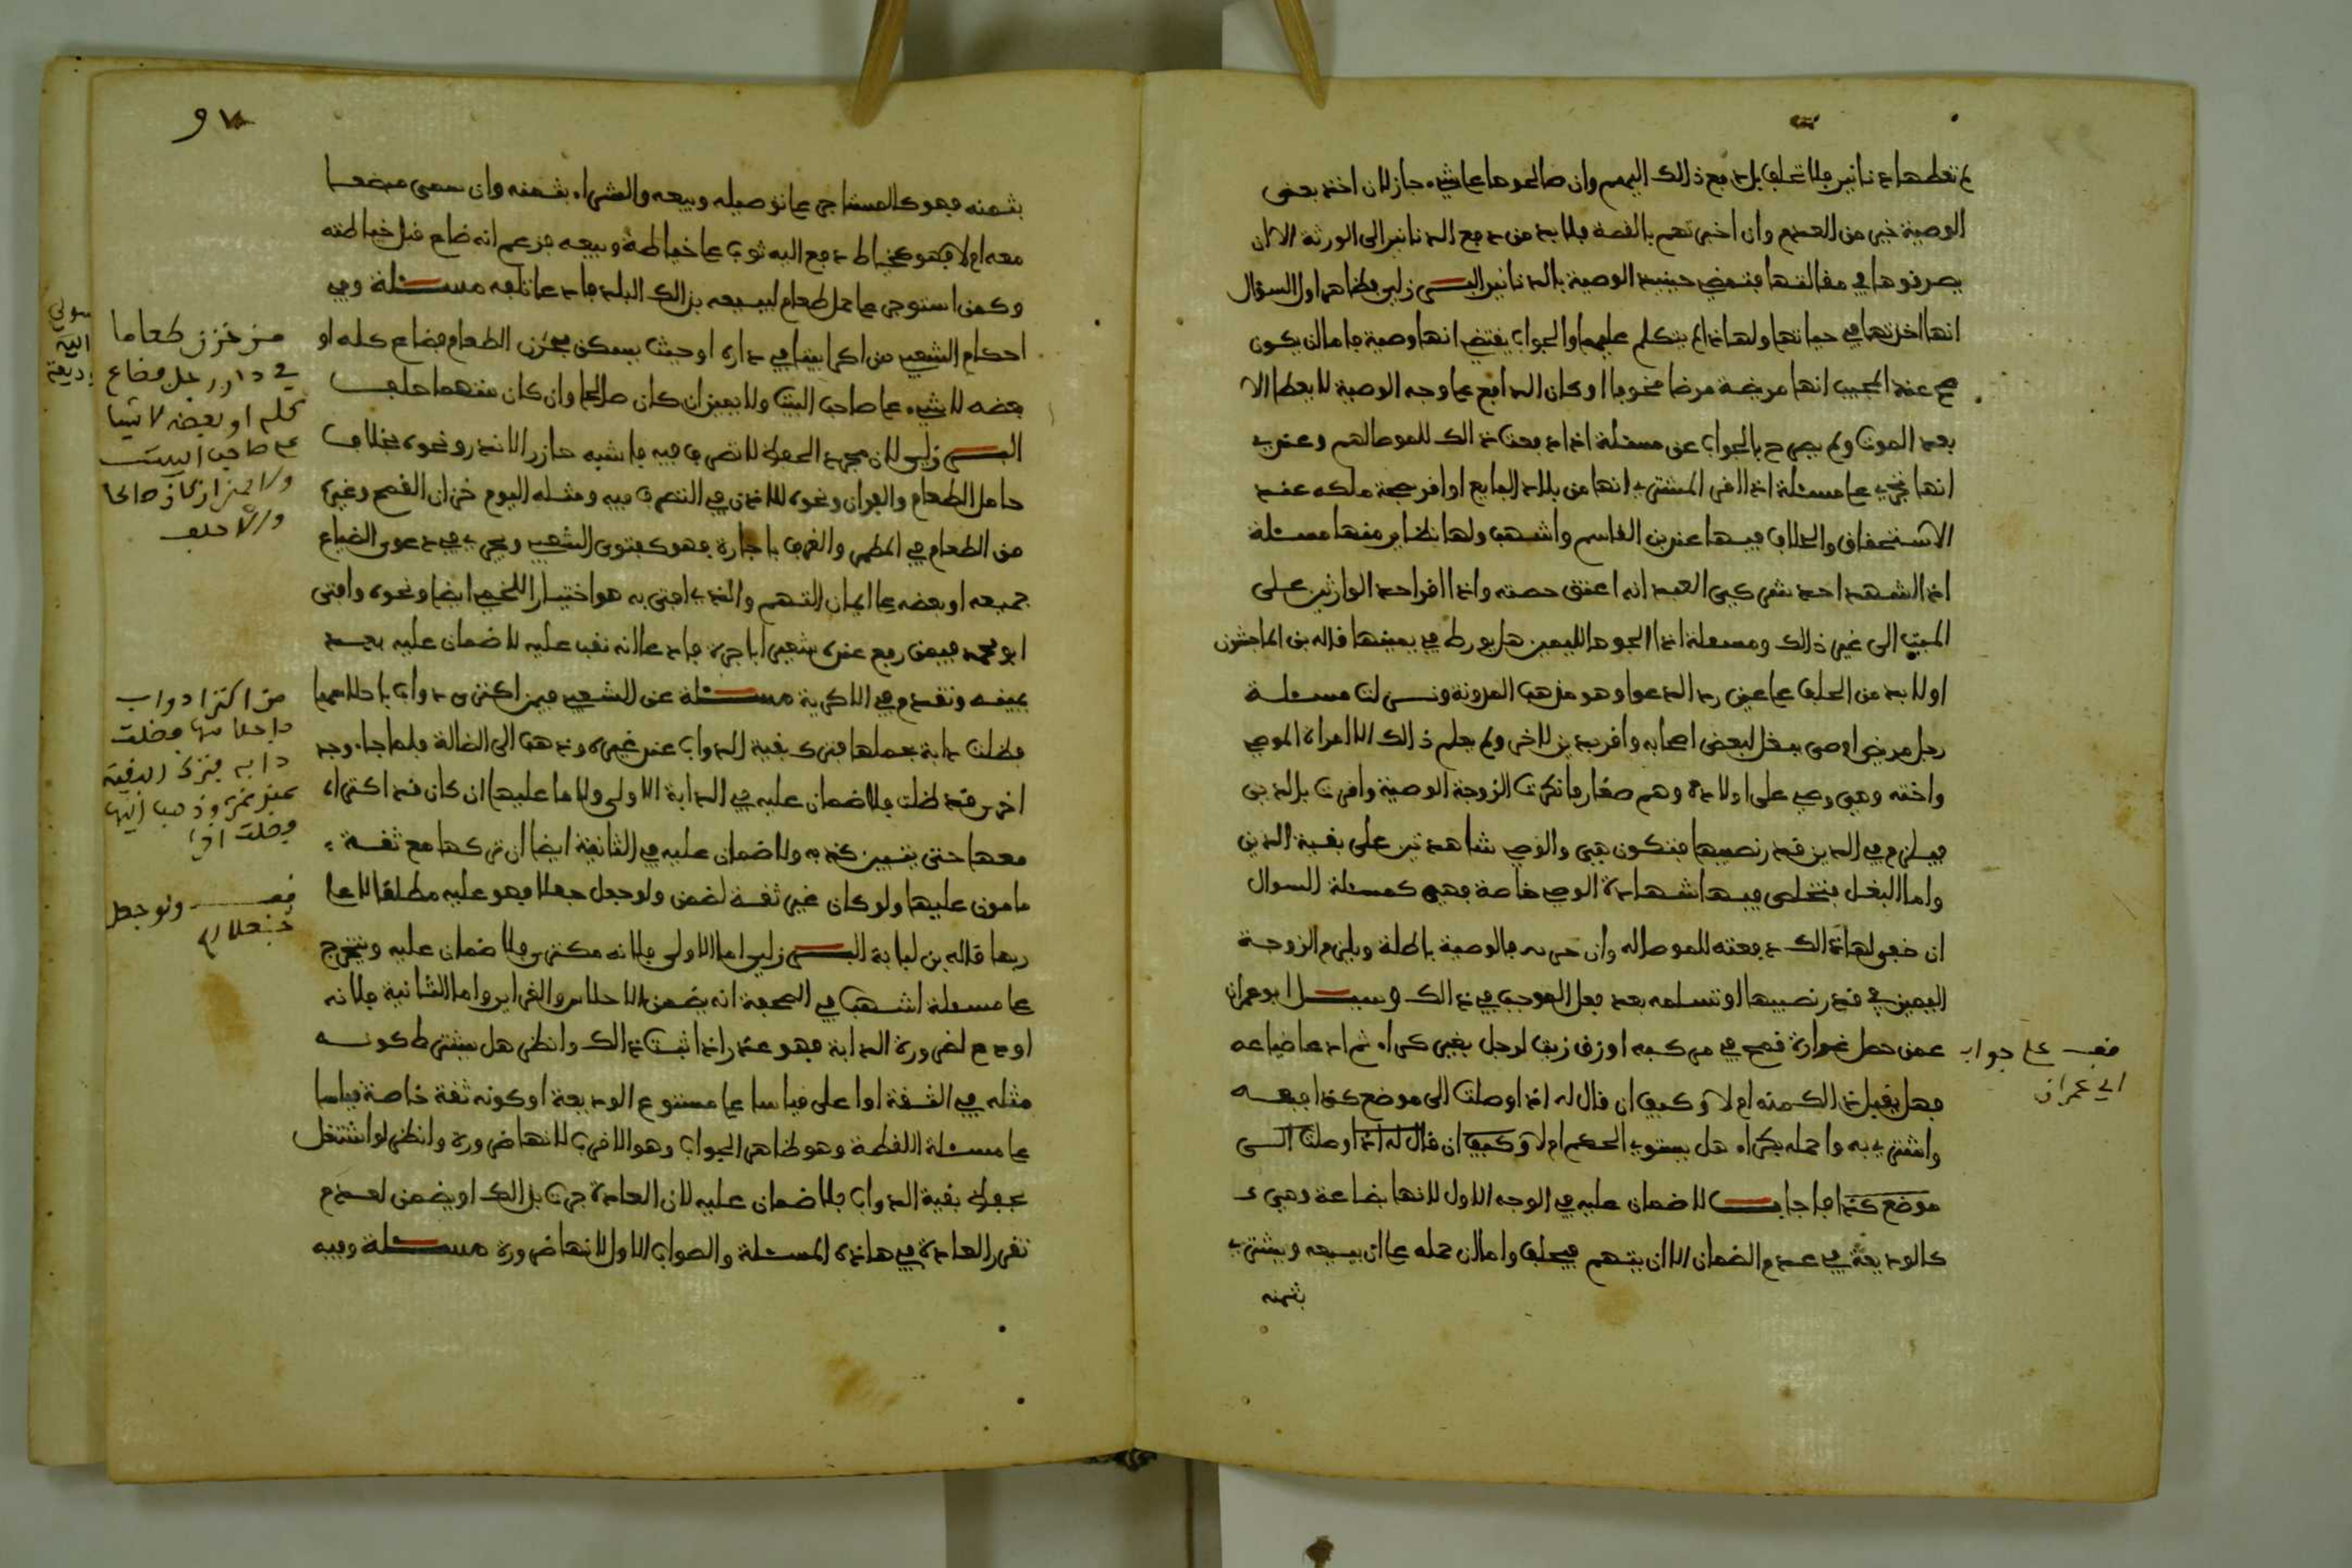 لم تعطها دنانير فلا تحلف بل دفع ذلك اليهم وان صالحوها على شيء جاز لان اخذ بعض
الوصية خير من العدم وان اخبرتهم بالقصة فلا بد من دفع الدنانير الى الورثة الا ان
يصدقوها في مقالتها فتمضي حينئذ الوصية بالدنانير البرزلي فظاهر اول السؤال
انها اخذتها في حياتها ولهاذا لم يتكلم عليهم والجواب يقتضي انها وصية فاما ان يكون
صح عند المجيب انها مريضة مرضا مخوفا او كان الدافع على وجه الوصية لا يعطا الا
بعد الموت ولم يصرح بالجواب عن مسئلة اذا دفعت ذالك للموصا لهم وعندي
انها تجري على مسئلة اذا اقر المشتري انها من بلاد البايع او اقر بصحة ملكه عند
الاستحقاق والخلاف فيها عند بن القاسم واشهب ولها نظاير منها مسئلة
اذا شهد احد شريكي العبد انه اعتق حصته واذا اقر احد الوارثين على
الميت الى غير ذلك ومسئلة اذا الجوها لليمين هل يورط في يمينها قاله بن الماجشون
او لا بد من الحلف على عين رد الدعوا وهو مذهب المدونة ونسى لنا مسئلة
رجل مريض اوصى ببغل لبعض اصحابه واقر بدين لاخر ولم يعلم ذالك الا امراة الموصي
واخته وهي وصي على اولاده وهم صغار فانكرت الزوجة الوصية واقرت بالدين
فيلزم في الدين قدر نصيبها فتكون هي والوصي شاهدين على بقية الدين
واما البغل فتخلص فيها شهادة الوصي خاصة فهي كمسئلة السوال
ان خفي لها ذالك دفعته للموصا له وان فالوصية باطلة ويلزم الزوجة
اليمين في قدر نصيبها او تسلمه بعد فعل الموجب في ذالك وسيل ابو عمران
عمن حمل غرارة قمح في مركبه او زق زيت لرجل بغير كراء ثم ادعا ضياعه
فهل يقبل ذالك منه ام لا وكيف ان قال له اذا وصلت الى موضع كذا فبعه
واشتري به واحمله بكراء هل يستوي الحكم ام لا وكيف ان قال له اذا وصلت الى
موضع كذا فاجاب لا ضمان عليه في الوجه الاول لانها بضاعة وهي
كالوديعة في عدم الضمان الا ان يتهم فيحلف واما ان حمله على ان يبيعه ويشتري
بثمنه
قف على جواب
ابي عمران
٩٧
بثمنه فهو كالمستاجر على توصيله وبيعه والشراء بثمنه وان سمى موضعا
معه ام لا فهو كخياط دفع اليه ثوب على خياطة وبيعه فزعم انه ضاع قبل خياطته
وكمن استوجر على حمل طعام ليبيعه بذالك البلد فادعا تلفه مسئلة وفي
احكام الشعبي من اكرا بيتا في داره او حيث يسكن يخزن الطعام فضاع كله او
بعضه لا شيء على صاحب البيت ولا يمين ان كان صالحا وان كان متهما حلف
البرزلي لان مجرد الحفظ لا تصرف فيه فاشبه حارز الاندر ونحوه بخلاف
حامل الطعام والفران ونحوه للاذن في التصرف فيه ومثله اليوم خزان القمح وغيره
من الطعام في المطمر والغرف باجارة فهو كفتوى الشعبي ويجري في دعوى الضياع
جميعه او بعضه على ايمان التهم والذي افتى به هو اختيار اللخمي ايضا ونحوه وافتى
ابو محمد فيمن رفع عنده شعيرا باجرة فادعا انه نقب عليه لا ضمان عليه بعد
يمينه وتقدم في الاكرية مسئلة عن الشعبي فيمن اكترى دواب باحلاسها
فظلت دابة بحملها فترك بقية الدواب عند غيره وذهب الى الضالة فلما جاء وجد
اخرى قد ظلت فلا ضمان عليه في الدابة الاولى ولا ما عليها ان كان قد اكتراه
معها حتى يتبين كذبه ولا ضمان عليه في الثانية ايضا ان تركها مع ثقة
مامون عليها ولو كان غير ثقة لضمن ولو جعل جعلا فهو عليه مطلقا لا على
ربها قاله بن لبابة البرزلي اما الاولى فلانه مكترى فلا ضمان عليه ويتخرج
على مسئلة اشهب في الصحفة انه يضمن الاحلاس والغراير واما الثانية فلانه
اودع لضرورة الدابة فهو عذر اذا ثبت ذالك وانظر هل يشترط كونه
مثله في الثقة او اعلى قياسا على مستودع الوديعة او كونه ثقة خاصة قياسا
على مسئلة اللقطة وهو ظاهر الجواب وهو الاقرب لانها ضرورة وانظر لو اشتغل
بحفظ بقية الدواب فلا ضمان عليه لان العادة جرت بذالك او يضمن لعدم
تقرر العادة في هاذه المسئلة والصواب الاول لانها ضرورة مسئلة وفيه
من خزن طعاما
في دار رجل فضاع
كله او بعضه لا شيا
على صاحب البيت
ولا يمين ان كان صالحا
والا حلف
من اكترا دواب
باحلاسها فضلت
دابه فترك البقية
عند غيره وذهب اليها
فضلت اخرا
قف ولو جعل
جعلا